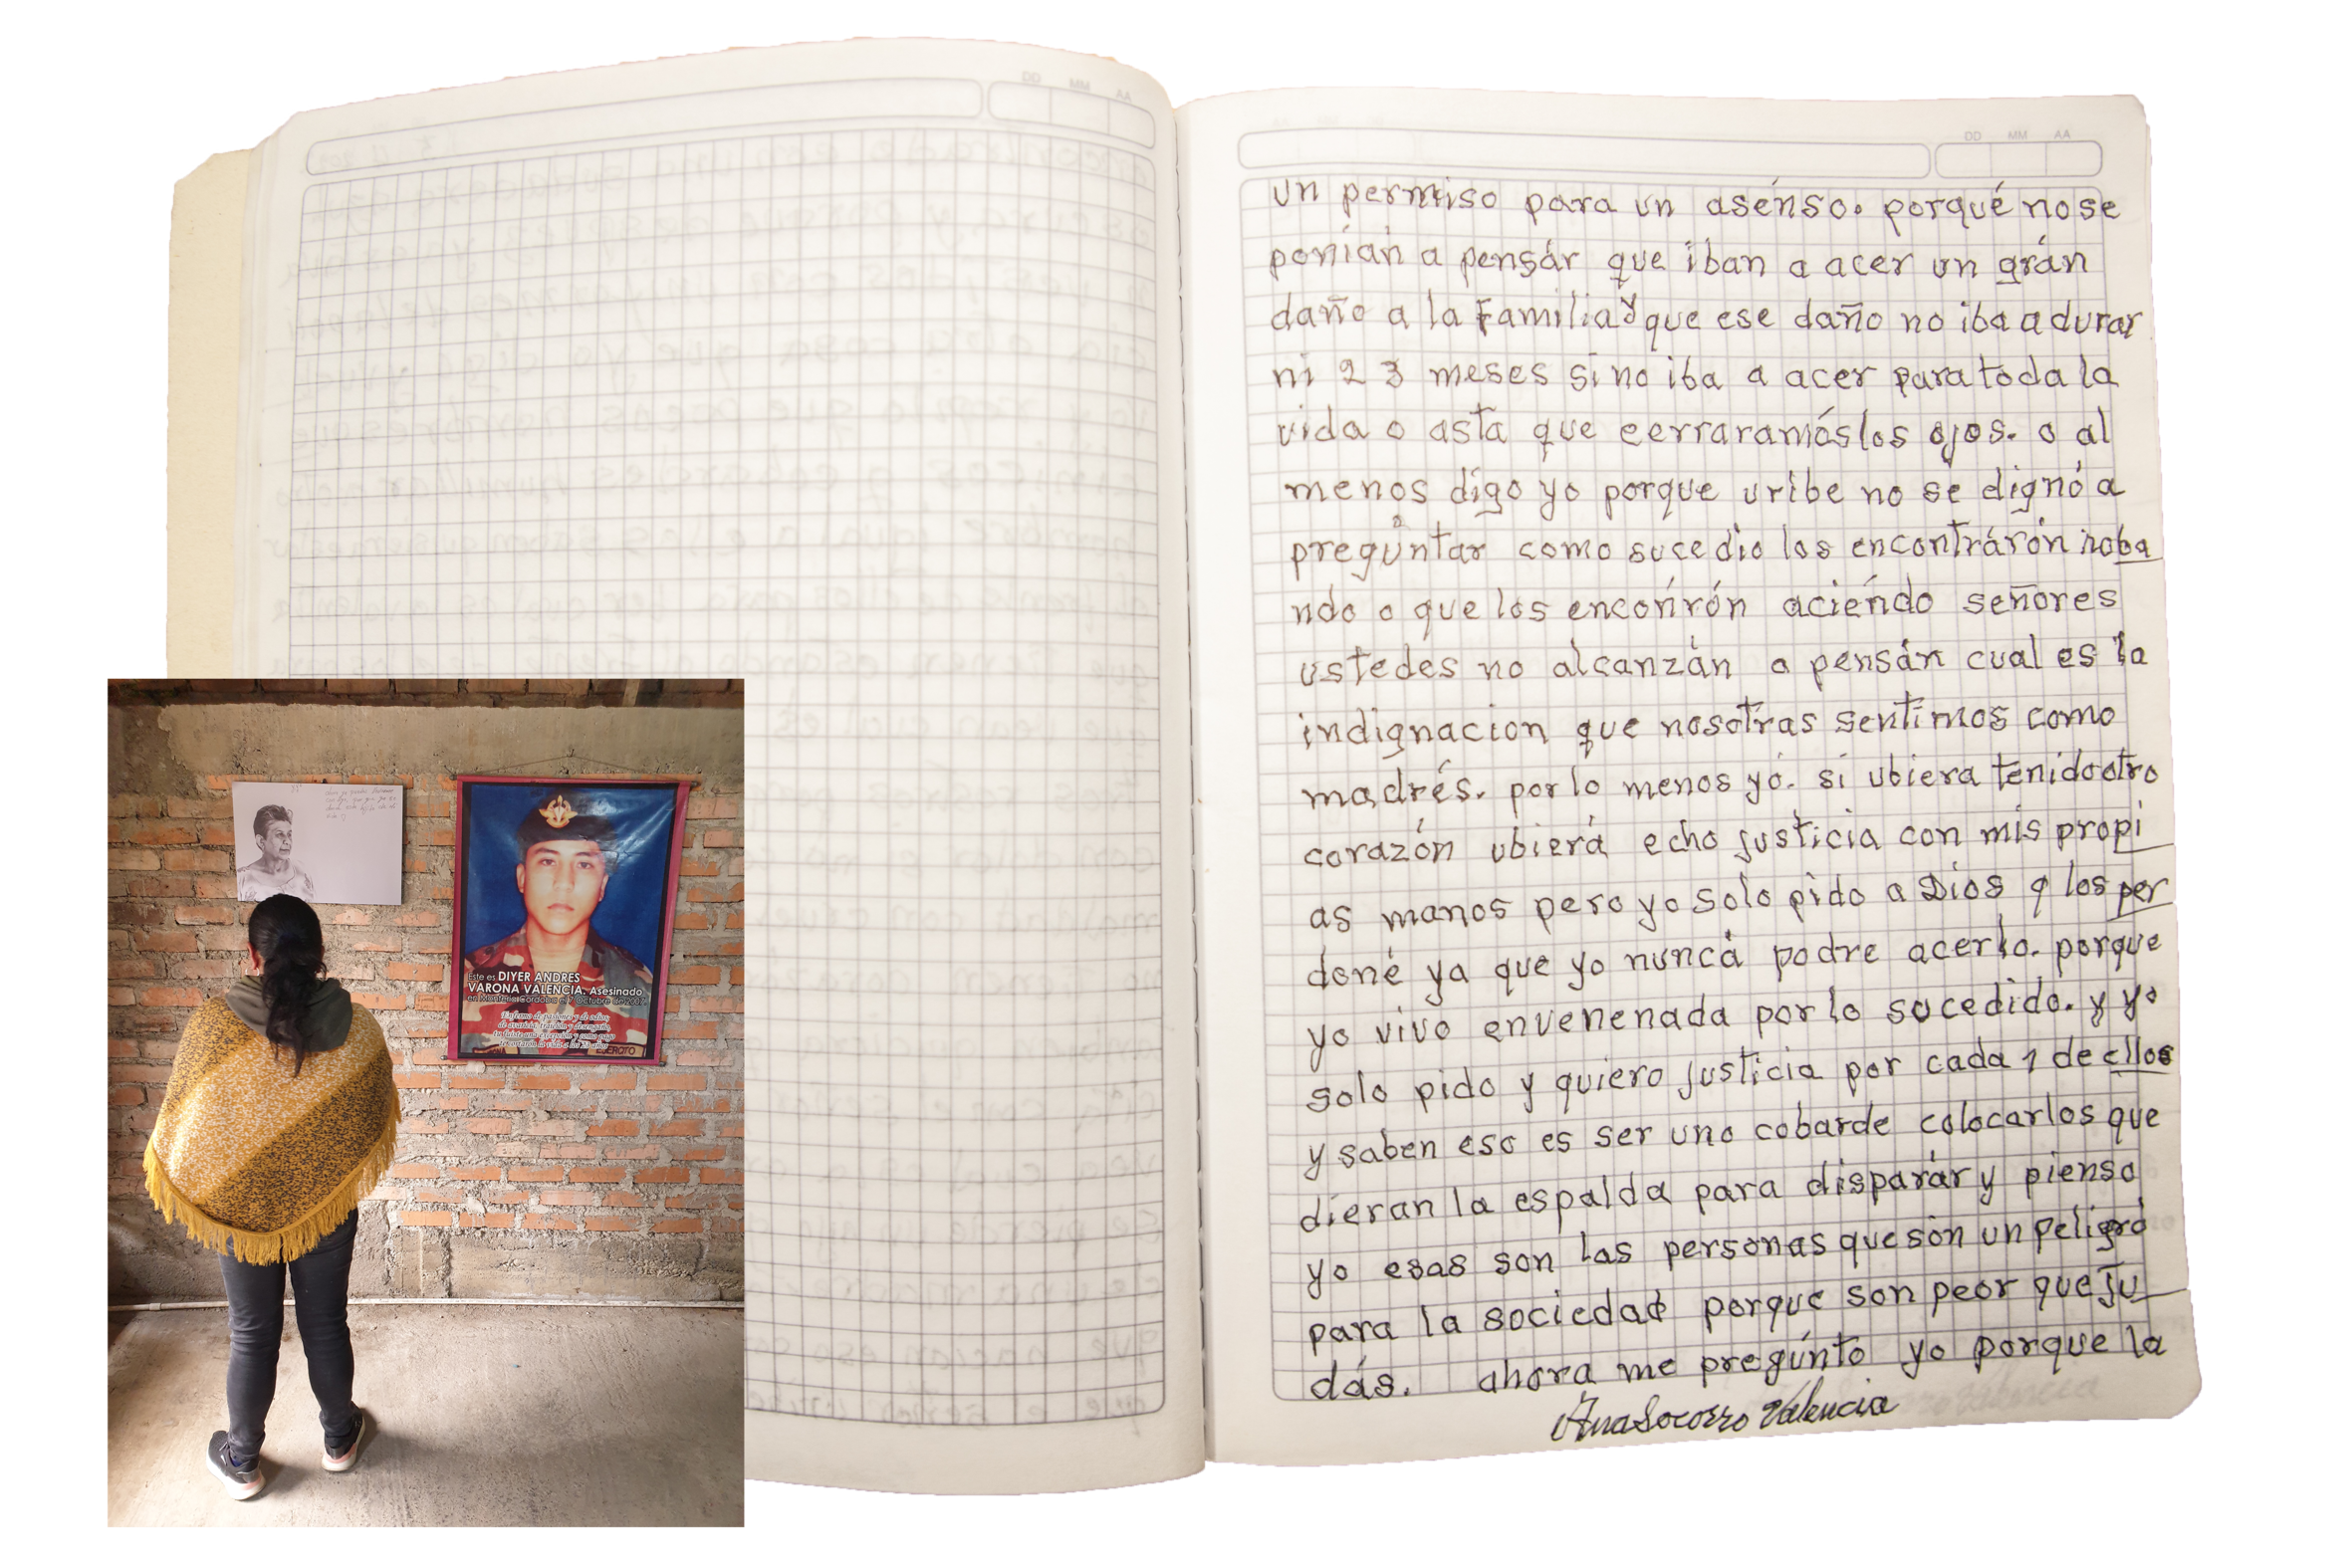 DD MM AA
DD MM AA
un permiso para un asénso. porqué no se
ponían a pensár que iban a acer un grán
daño a la Familia y que ese daño no iba a durar
ni 2 3 meses sino iba a acer para toda la
vida o asta que cerraramós los ojos. o al
menos digo yo porque uribe no se dignó a
pregúntar como sucedio los encontrárón roba
ndo o que los enconrón aciéndo señores
ustedes no alcanzán a pensán cual es la
indignacion que nosotras sentimos como
madrés. por lo menos yó. si ubiera tenido otro
corazón ubierá echo justicia con mis propi
as manos pero yo solo pido a Dios q los per
doné ya que yo nuncá podre acerlo. porque
yo vivo envenenada por lo sucedido. y yo
solo pido y quiero justicia por cada 1 de ellos
y saben eso es ser uno cobarde colocarlos que
dieran la espalda para disparár y pienso
yo esas son las personas que són un peligró
para la sociedad porque son peor que Ju
dás. ahora me pregúnto yo porque la
Ana Socorro Valencia
Este es DIYER ANDRES
VARONA VALENCIA. Asesinado
en Montería Córdoba el Octubre de
Enfermo de pasiones y de odios,
de avaricia, traición y desengaño,
la vida a los
EJERCITO